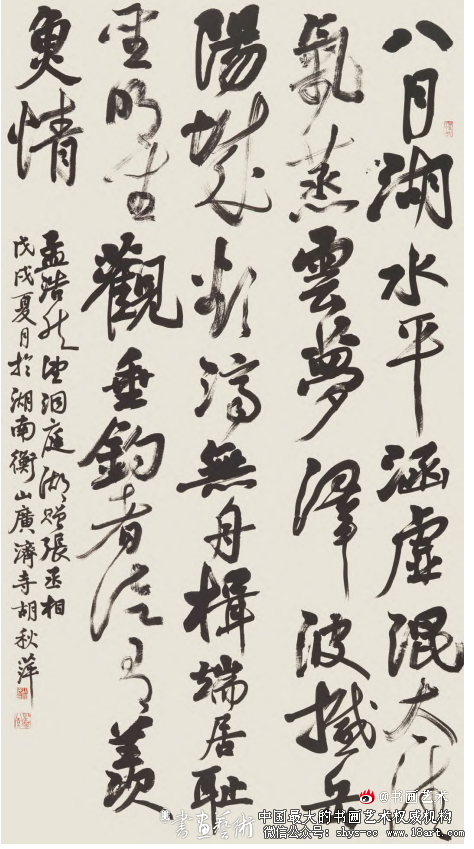 八月湖水平涵虛混太清
氣蒸雲夢澤波撼岳
陽城欲濟無舟楫端居恥
聖明坐觀垂釣者徒有羨
魚情
孟浩然望洞庭湖贈張丞相
戊戌夏月於湖南衡山廣濟寺胡秋萍
@书画艺术
書畫藝術
中国最大的书画艺术权威机构
微信公众号: shys-cc www.18art.com